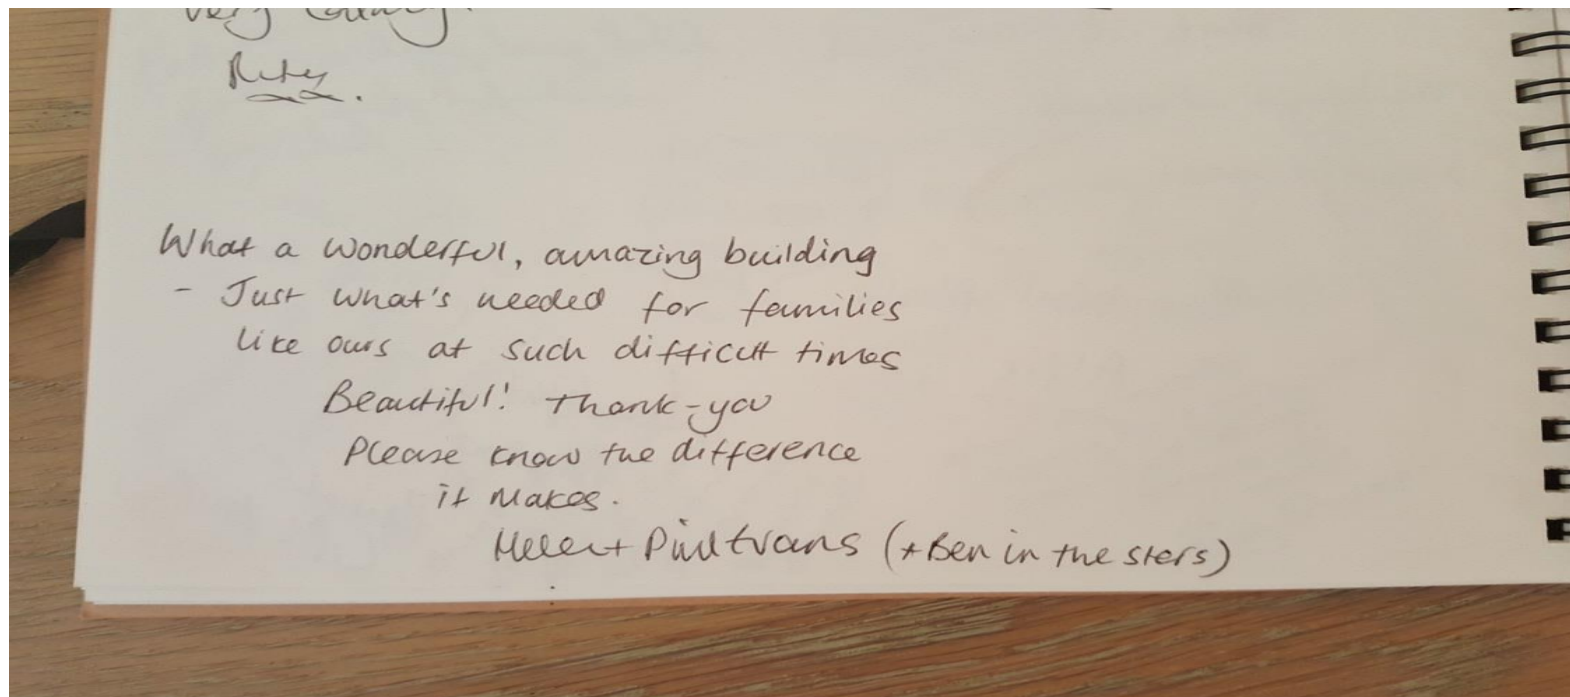 very
What a wonderful, amazing building
- Just what's needed for families
like ours at such difficult times
Beautiful! Thank-you
Please know the difference
it makes.
Helen + Phil Evans (+ Ben in the stars)